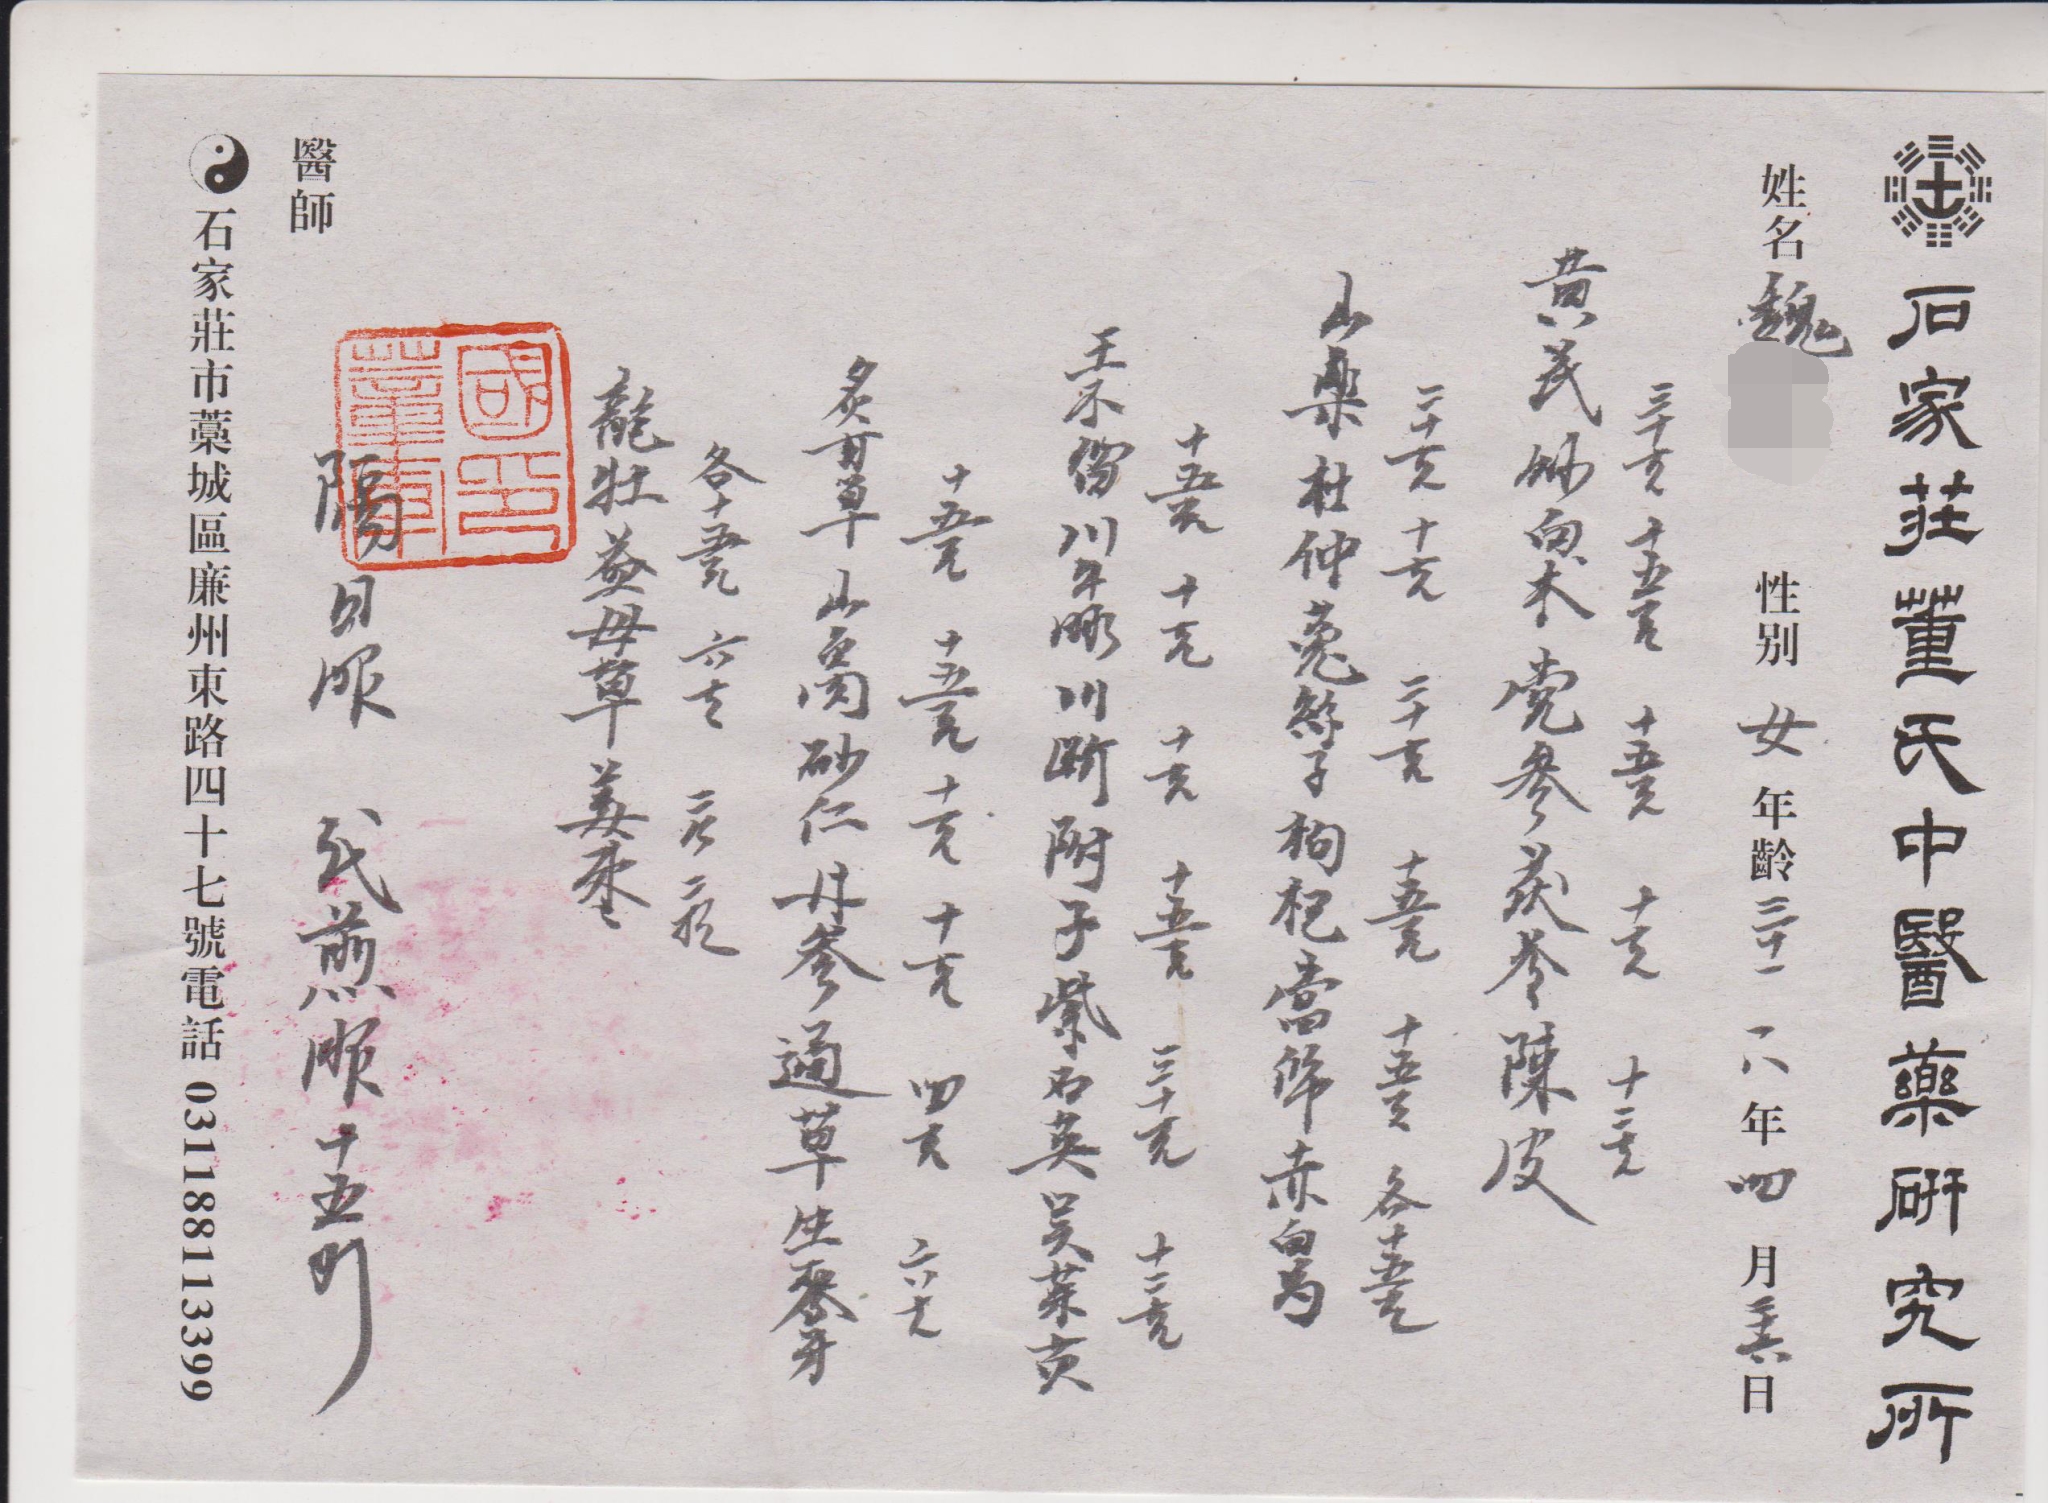 石家莊董氏中醫藥研究所
姓名 魏 性别 女 年齡 三十一 一八年四月二十六日
三十克 十五克 十五克 十克 十二克
黄芪 炒白术 党参 茯苓 陳皮
二十克 十克 二十克 十五克 十五克 各十五克
山藥 杜仲 菟絲子 枸杞 當归 赤白芍
十五克 十克 十克 十五克 三十克 十二克
王不留 川牛膝 川断 附子 紫石英 吴茱萸
十五克 十五克 十克 十克 四克 六克
炙甘草 山萸肉 砂仁 丹参 通草 生麥芽
各十五克 六克
龍牡 益母草 姜枣
隔日服 或煎服 十五剂
醫師
石家莊市藁城區廉州東路四十七號電話 031188113399